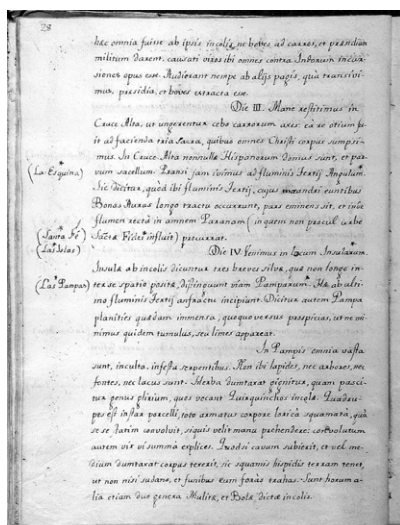 28
hæc omnia fuisse ab ipsis incolis, ne boves ad carros, et præsidium
militum darent, causati viros ibi omnes contra Indorum incur-
siones opus esse. Audierant nempe ab alijs pagis, quà transivi-
mus, præsidia, et boves extracta esse.
Die III. Mane restitimus in
Cruce Alta, ut ungerentur sebo carrorum axes: eâ re otium fu-
it ad facienda tria Sacra, quibus omnes Christi corpus sumpsi-
mus. In Cruce Alta nonnullæ Hispanorum domus sunt, et par-
vum sacellum. Pransi jam ivimus ad fluminis Tertij Angulum.
(La Esquina)
Sic dicitur, quòd ibi fluminis Tertij, cujus mæandri euntibus
Bonas Auras longo tractu occurrunt, pars eminens sit, et inde
flumen rectà in amnem Paranam (in quem non procul urbe
(Santa Fé)
Sanctæ Fidei influit) procurrat.
(Las Islas)
Die IV. Venimus in locum Insularum.
Insulæ ab incolis dicuntur tres breves silvæ, quæ non longo in-
(Las Pampas)
ter se spatio positæ, distinguunt viam Pamparum. Hæ ab ulti-
mo fluminis Tertij anfractu incipiunt. Dicitur autem Pampa
planities quædam immensa, quoquoversus prospicias, ut ne mi-
nimus quidem tumulus, seu limes appareat.
In Pampis omnia vasta
sunt, inculta, infesta serpentibus. Non ibi lapides, nec arbores, nec
fontes, nec lacus sunt. Herba dumtaxat gignitur, quam pasci-
tur genus glirium, quos vocant Quirquinchos incolæ. Quadru-
pes est instar porcelli, toto armatus corpore loricâ squamatâ, quâ
se statim convolvit, siquis velit manu prehendere: convolutum
autem vix vi summâ explices. Quodsi cavum subierit, et vel me-
dium dumtaxat corpus texerit, sic squamis hispidis terram tenet,
ut non nisi sudans, et funibus eum foras trahas. Sunt horum a-
lia etiam duo genera Mulitæ, et Bolæ dictæ incolis.